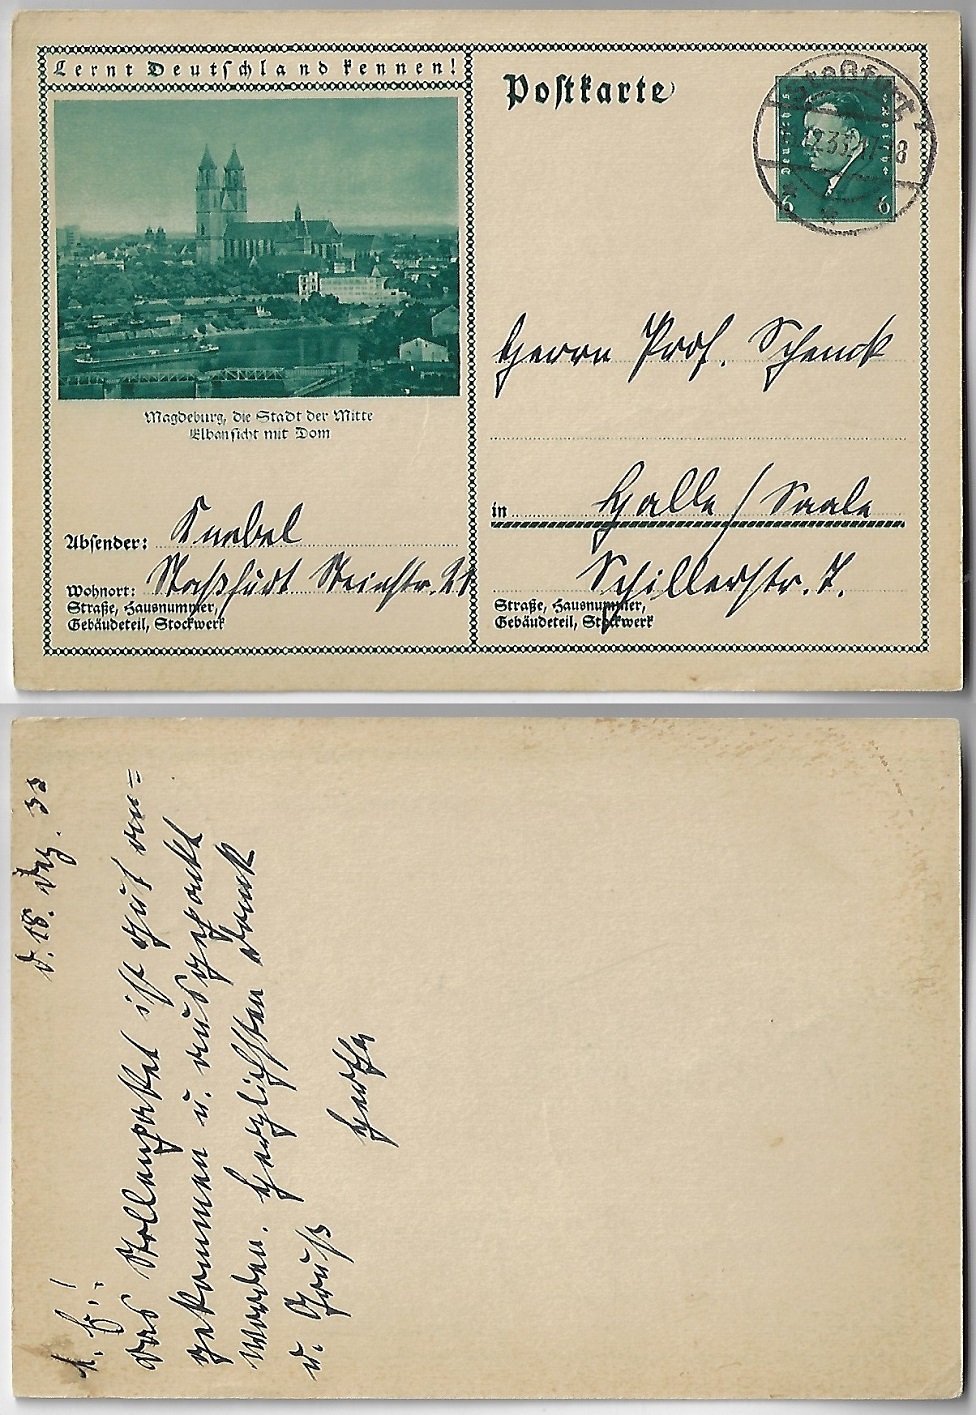 Lernt Deutschland kennen!
Postkarte
Staßfurt
12.33.17-8
6 6
Magdeburg, die Stadt der Mitte
Elbansicht mit Dom
Herrn Prof. Schenck
in Halle / Saale
Schillerstr. 7.
Straße, Hausnummer,
Gebäudeteil, Stockwerk
Absender: Knebel
Wohnort: Staßfurt Steinstr. 21
Straße, Hausnummer,
Gebäudeteil, Stockwerk
d. 18. Dez. 33
L. E.!
Das Stollenpaket ist gut an=
gekommen u. ausgepackt
worden. Herzlichsten Dank
u. Gruß
Hertha